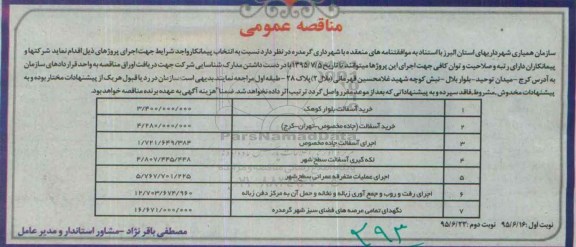 مناقصه عمومی
سازمان همیاری شهرداریهای استان البرز با استناد به موافقتنامه های منعقده با شهرداری گرمدره در نظر دارد نسبت به انتخاب پیمانکار واجد شرایط جهت اجرای پروژهای ذیل اقدام نماید. شرکتها و
پیمانکاران دارای رتبه و صلاحیت و توان کافی جهت اجرای این پروژها میتوانند تا تاریخ ۱۳۹۵/۷/۵ با در دست داشتن مدارک شناسایی شرکت جهت دریافت اوراق مناقصه به واحد قراردادهای سازمان
به آدرس کرج - میدان توحید - بلوار بلال - نبش کوچه شهید غلامحسین قهرمانی (بلال ۲) پلاک ۲۸ - طبقه اول مراجعه نمایند. بدیهی است سازمان در رد یا قبول هر یک از پیشنهادات مختار بوده و به
پیشنهادات مخدوش، مشروط، فاقد سپرده و به پیشنهاداتی که بعد از موعد مقرر واصل گردد ترتیب اثر داده نخواهد شد. ضمنا هزینه آگهی به عهده برنده مناقصه خواهد بود.
۱ خرید آسفالت بلوار کوهک ۳/۴۰۰/۰۰۰/۰۰۰
۲ خرید آسفالت (جاده مخصوص - تهران - کرج) ۴/۲۸۰/۰۰۰/۰۰۰
۳ اجرای آسفالت جاده مخصوص ۱/۷۲۱/۶۴۹/۳۸۳
۴ لکه گیری آسفالت سطح شهر ۴/۸۰۷/۴۳۵/۴۴۸
۵ اجرای عملیات متفرقه عمرانی سطح شهر ۵/۷۶۷/۷۰۱/۴۲۵
۶ اجرای رفت و روب و جمع آوری زباله و نخاله و حمل آن به مرکز دفن زباله ۱۲/۷۰۳/۶۷۴/۹۶۰
۷ نگهدای تمامی عرصه های فضای سبز شهر گرمدره ۱۶/۶۷۱/۰۰۰/۰۰۰
نوبت اول: ۹۵/۶/۱۶ نوبت دوم: ۹۵/۶/۲۳
مصطفی باقر نژاد - مشاور استاندار و مدیر عامل
۲۹۳
ParsNamadData